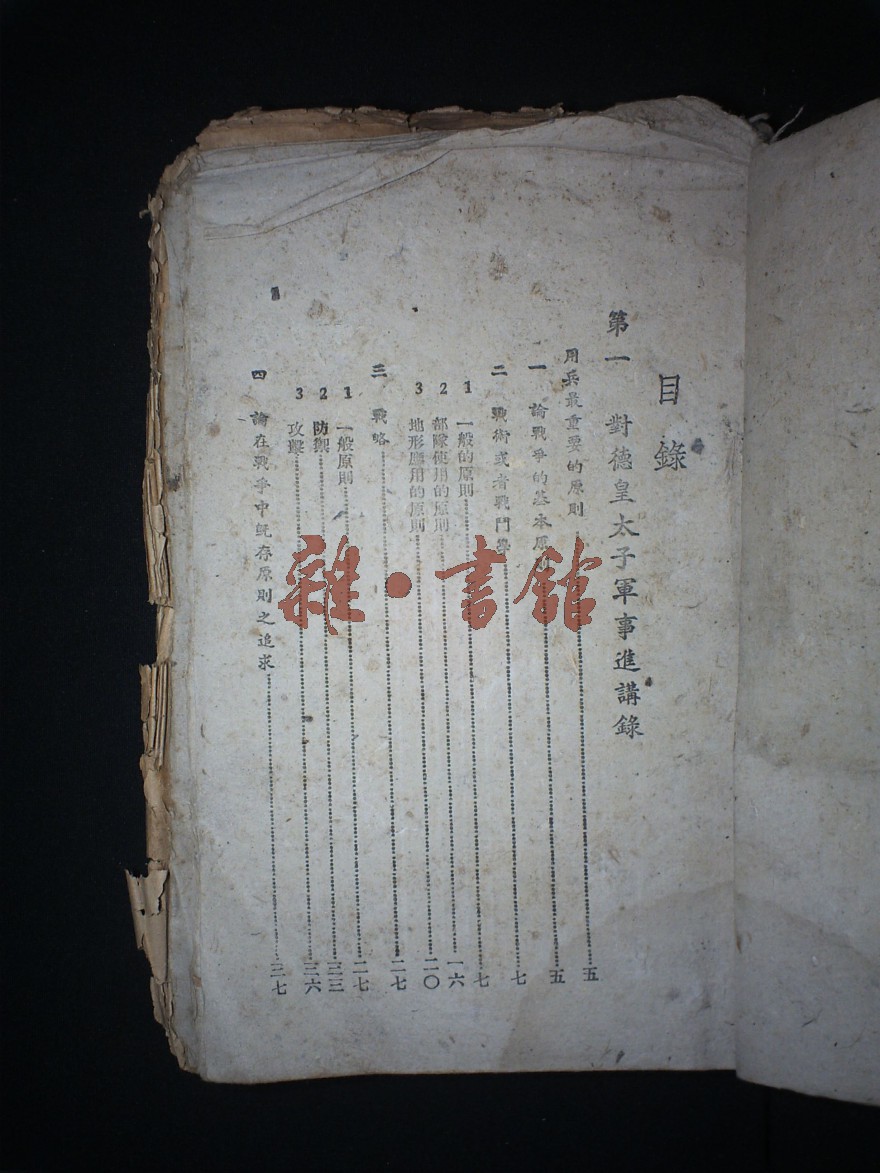 目錄
第一 對德皇太子軍事進講錄
用兵最重要的原則 五
一 論戰爭的基本原則 五
二 戰術或者戰鬥學 七
1 一般的原則 七
2 部隊使用的原則 一六
3 地形應用的原則 二〇
三 戰略 二七
1 一般原則 二七
2 防禦 三三
3 攻擊 三六
四 論在戰爭中旣存原則之追求 三七
雜·書館